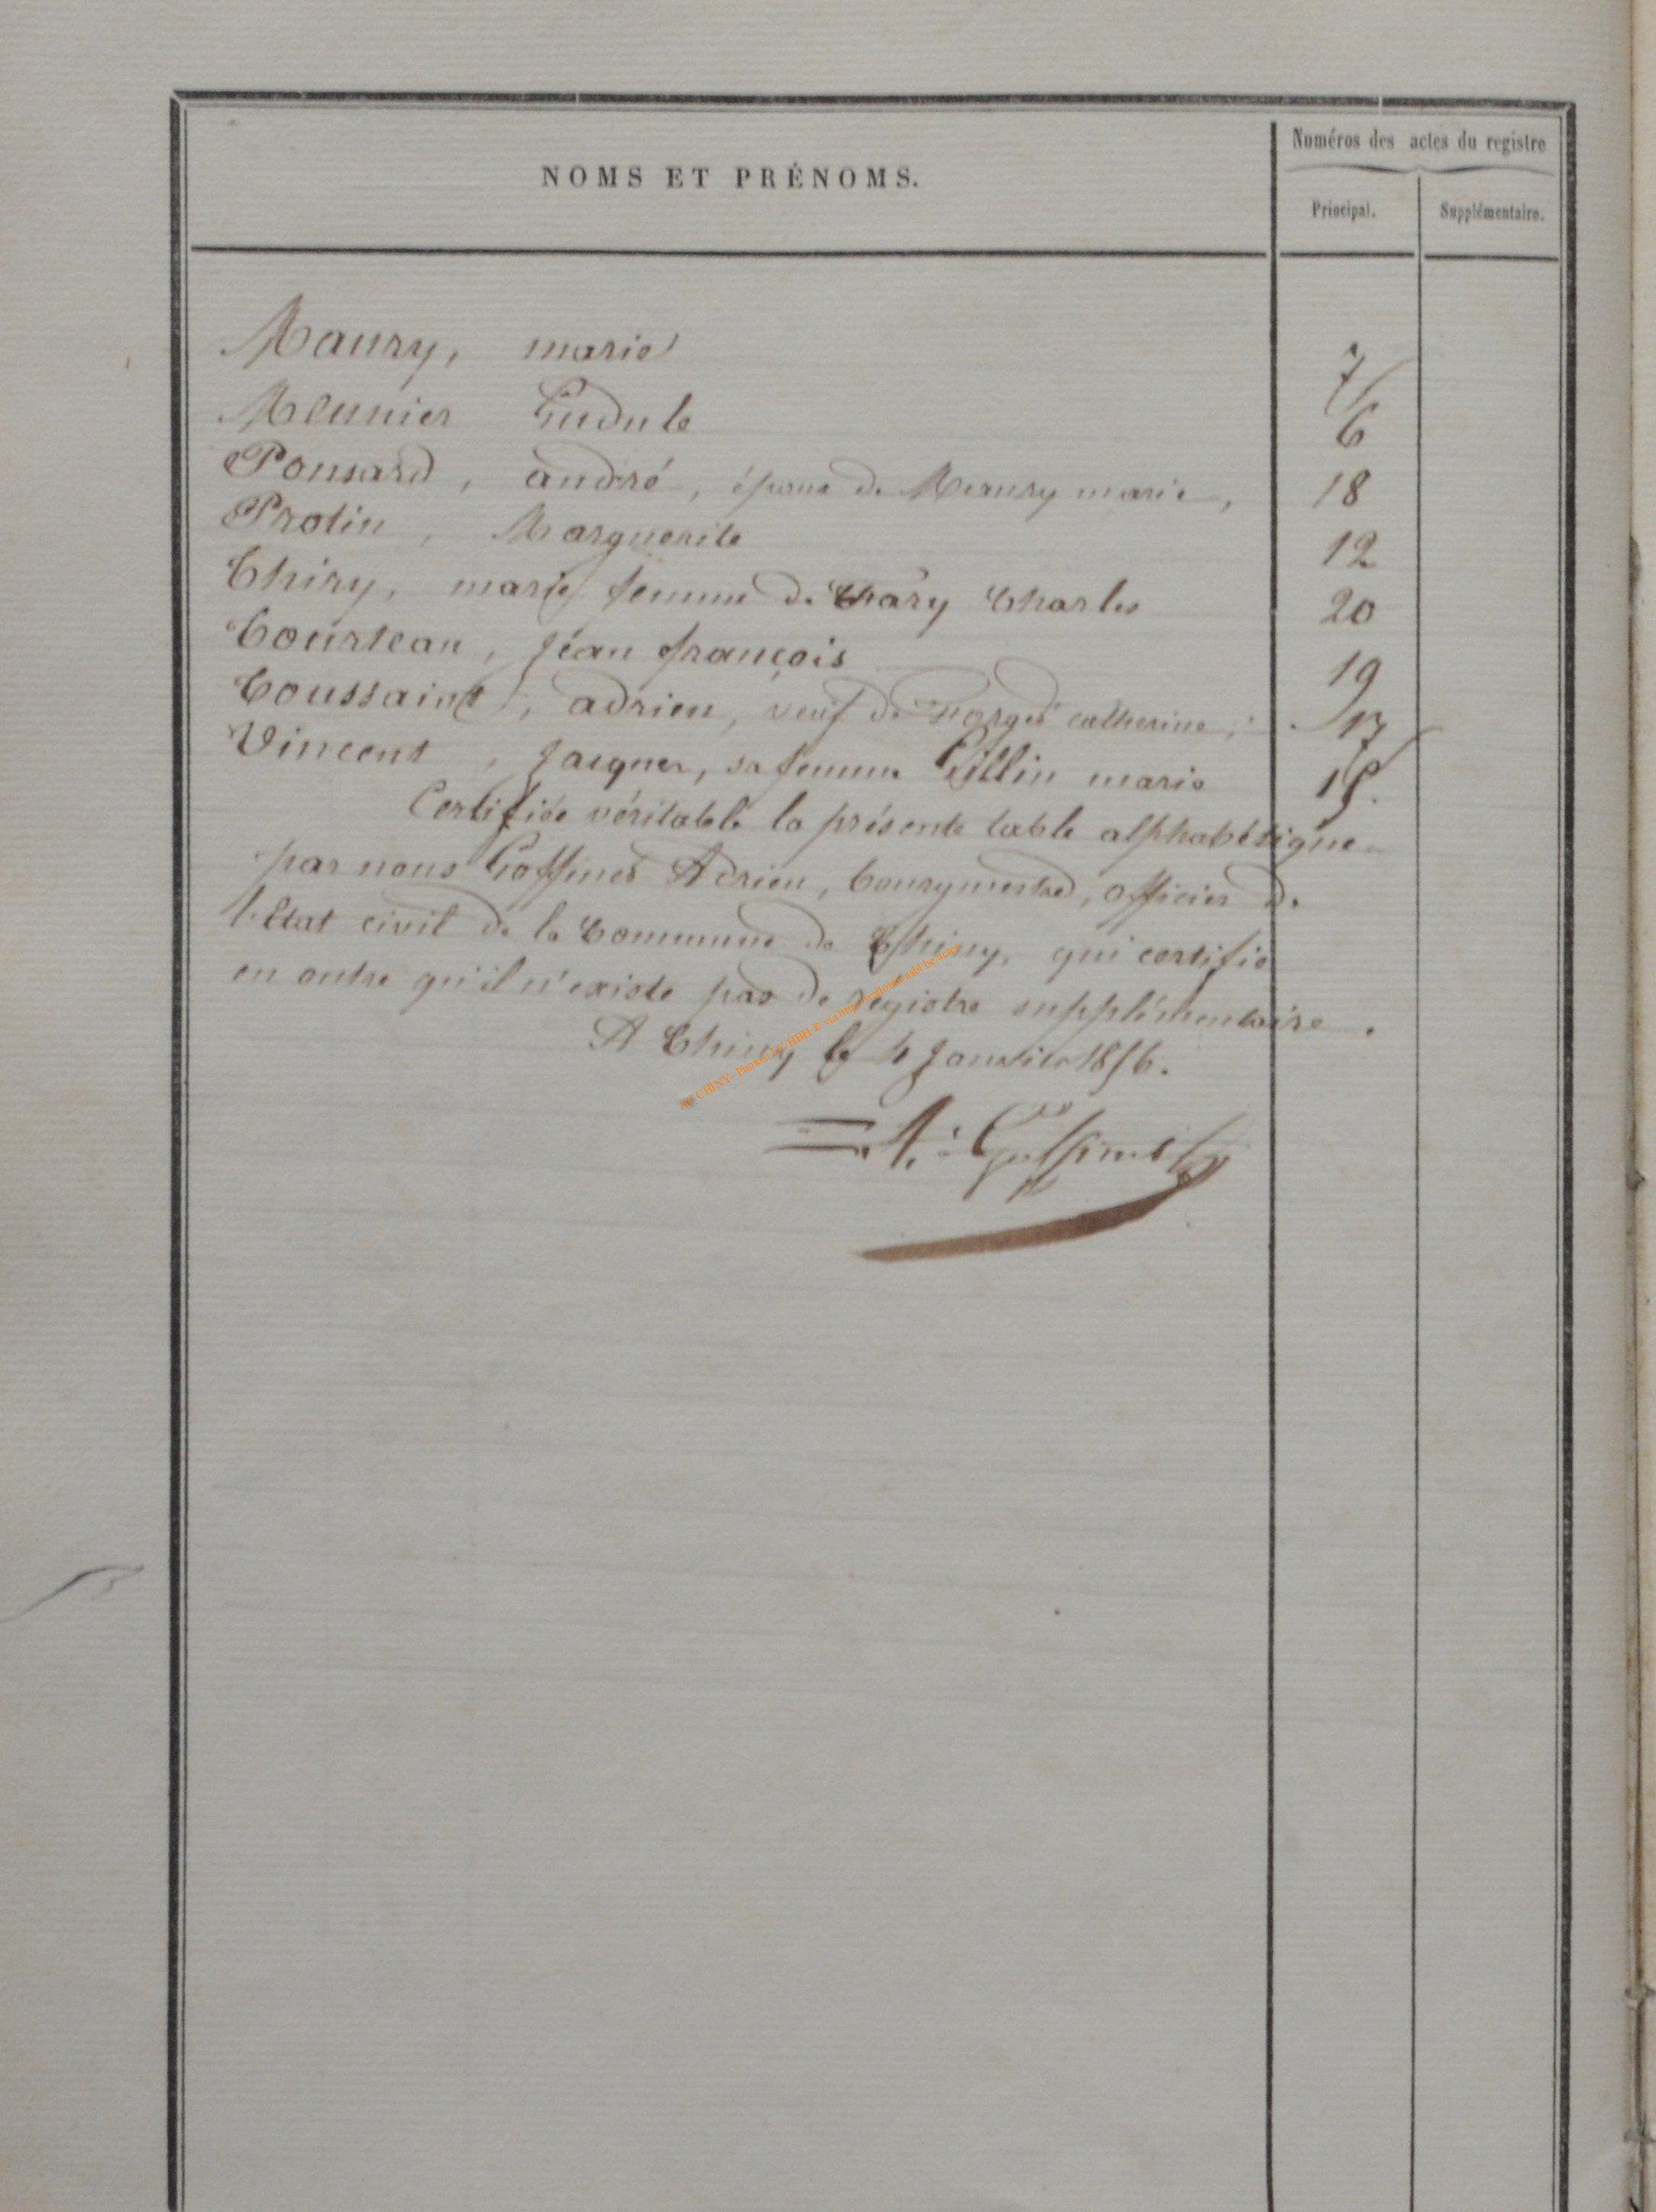 Numéros des actes du registre
NOMS ET PRÉNOMS.
Principal. Supplémentaire.
Maury, marie 7
Meunier Gudule 6
Ponsard, andré, époux de Maury marie, 18
Protin, Marguerite 12
Thiry, marie femme de Mary Charles 20
Tourteau, Jean françois 19
Toussaint, adrien, veuf de Forget catherine, 17
Vincent, Jacques, sa femme Gillin marie 15.
Certifiée véritable la présente table alphabétique
par nous Goffinet Adrien, bourgmestre, officier de
l'Etat civil de la Commune de Chiny, qui certifie
en outre qu'il n'existe pas de registre supplémentaire.
A Chiny le 4 Janvier 1856.
A. Goffinet